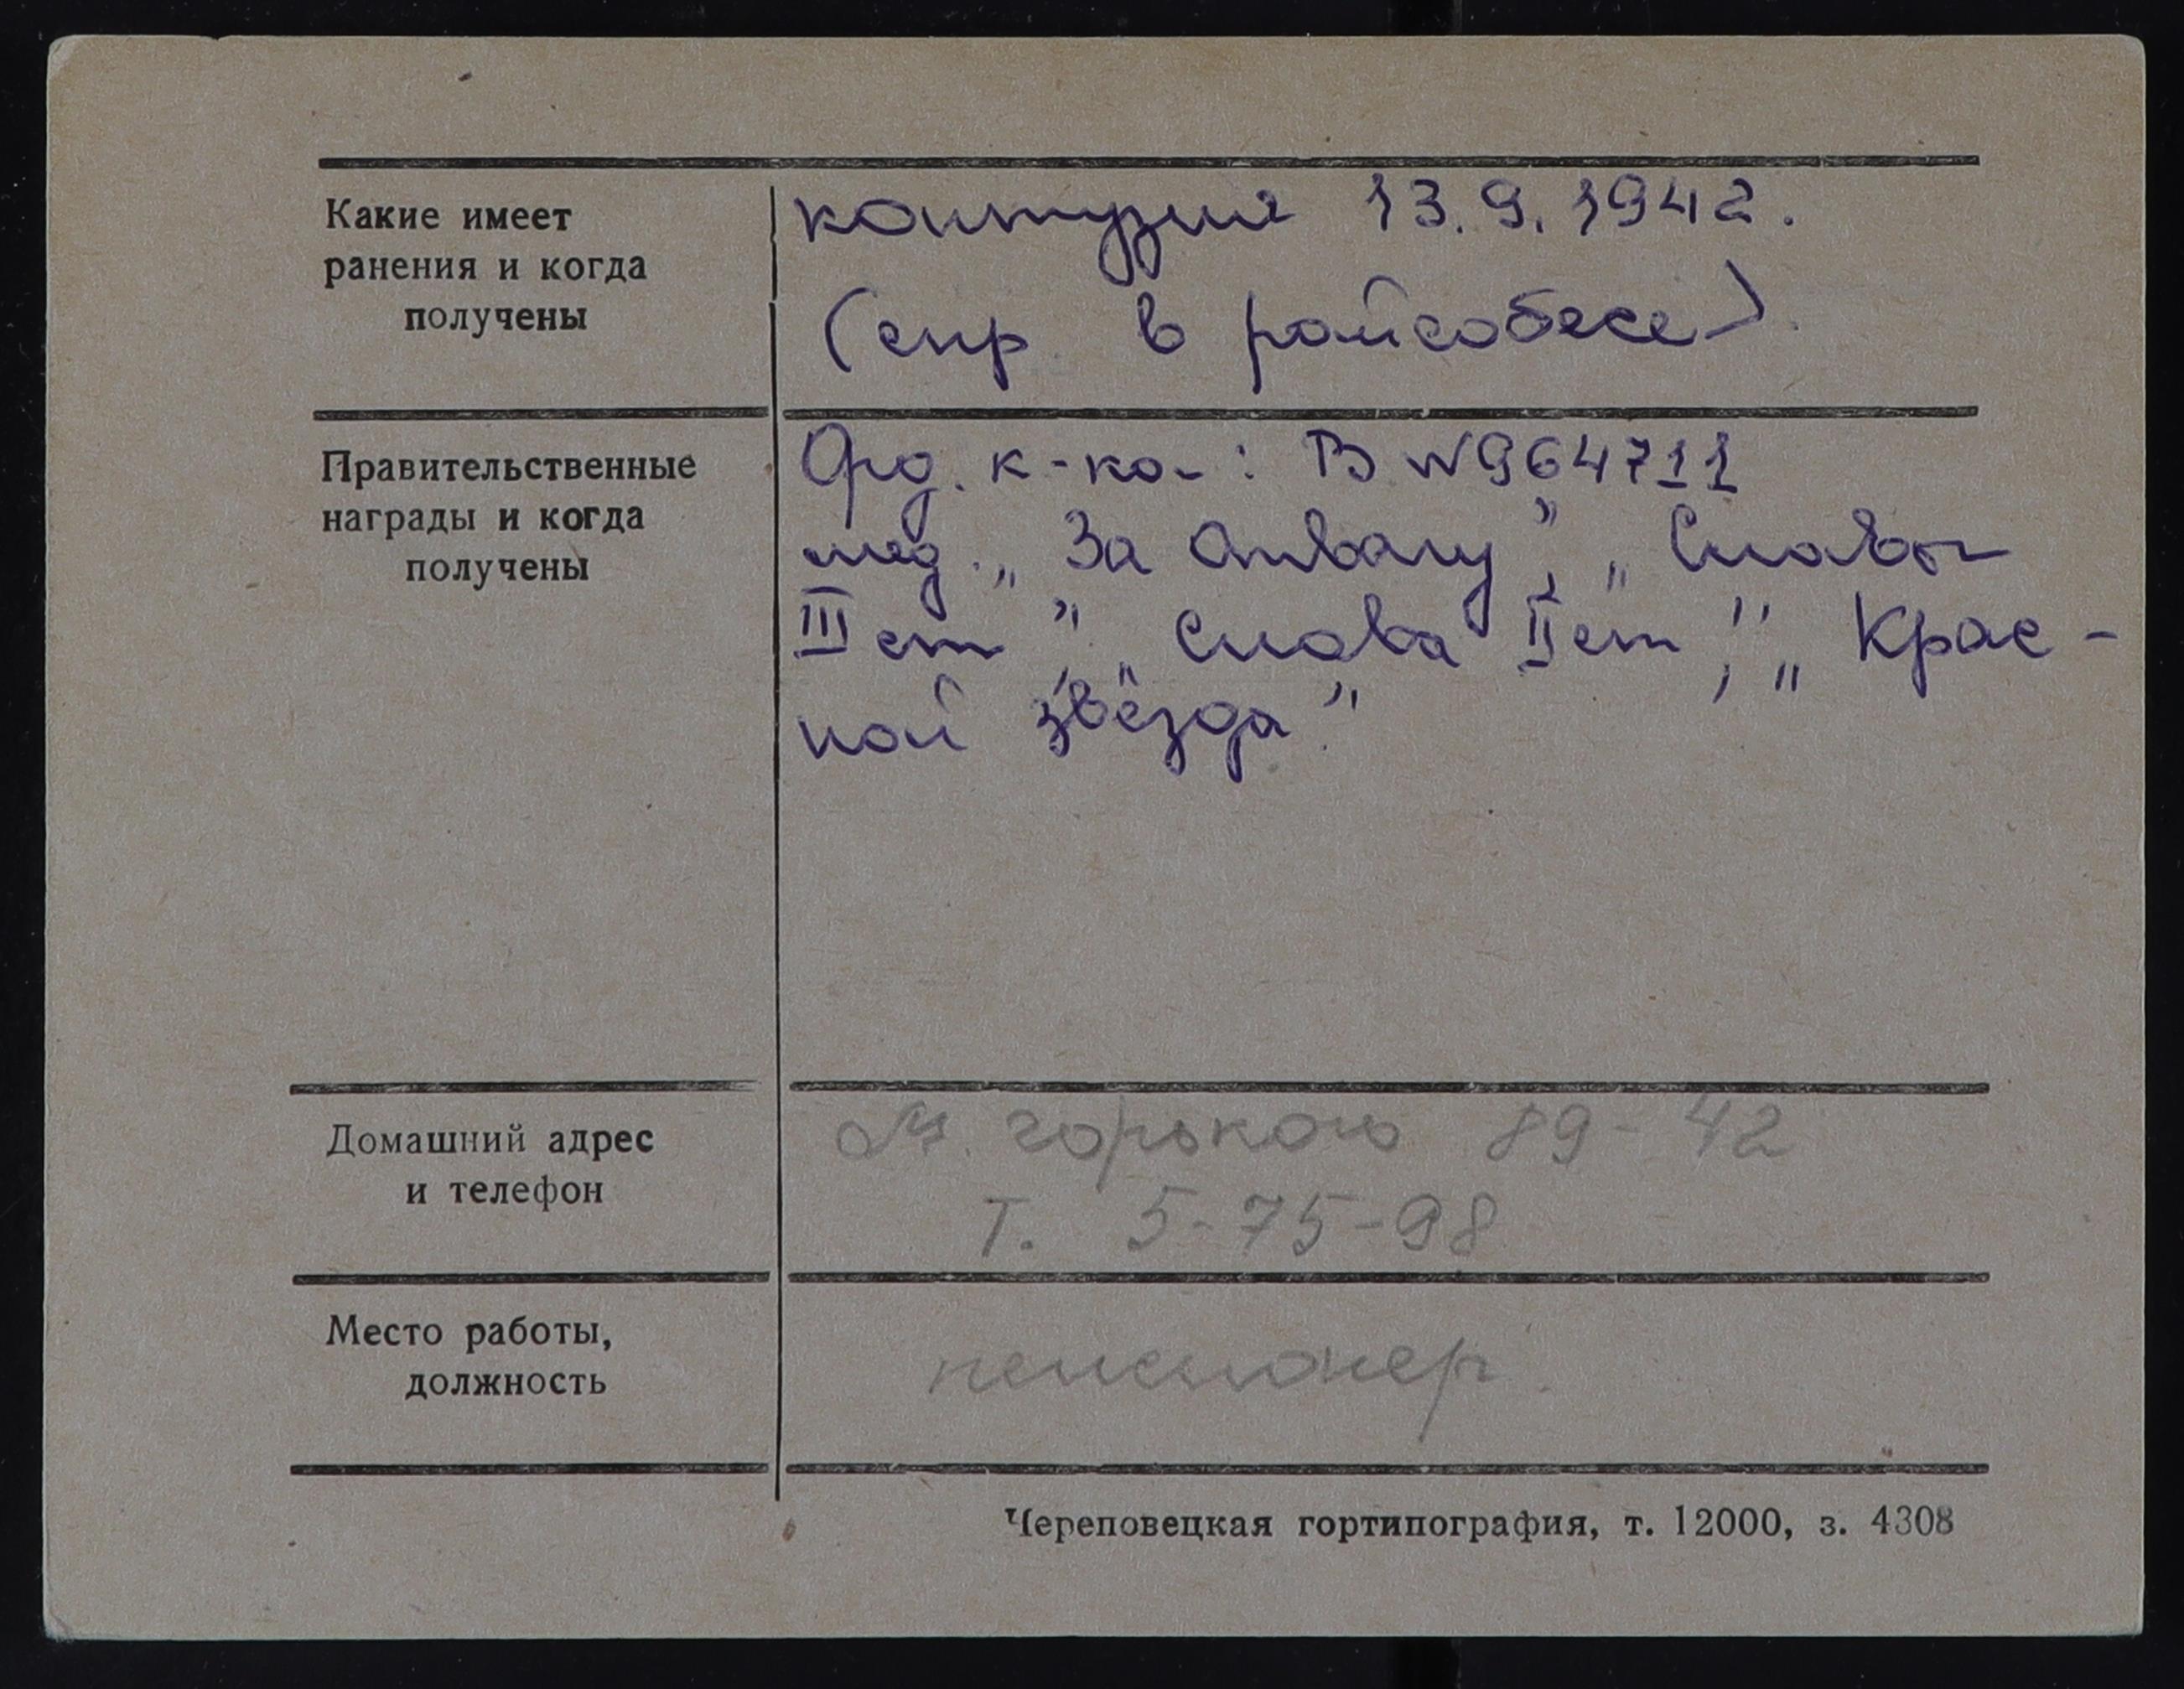 Какие имеет
ранения и когда
получены
контузия 13.9.1942.
(спр в райсобесе).
Правительственные
награды и когда
получены
Орд. к-ка: В N964711
мед. „За Отвагу", „Славы
III ст", „Слава II ст", „Крас-
ной звезда".
Домашний адрес
и телефон
М. Горького 89-42
Т. 5-75-98
Место работы,
должность
пенсионер.
Череповецкая гортипография, т. 12000, з. 4308